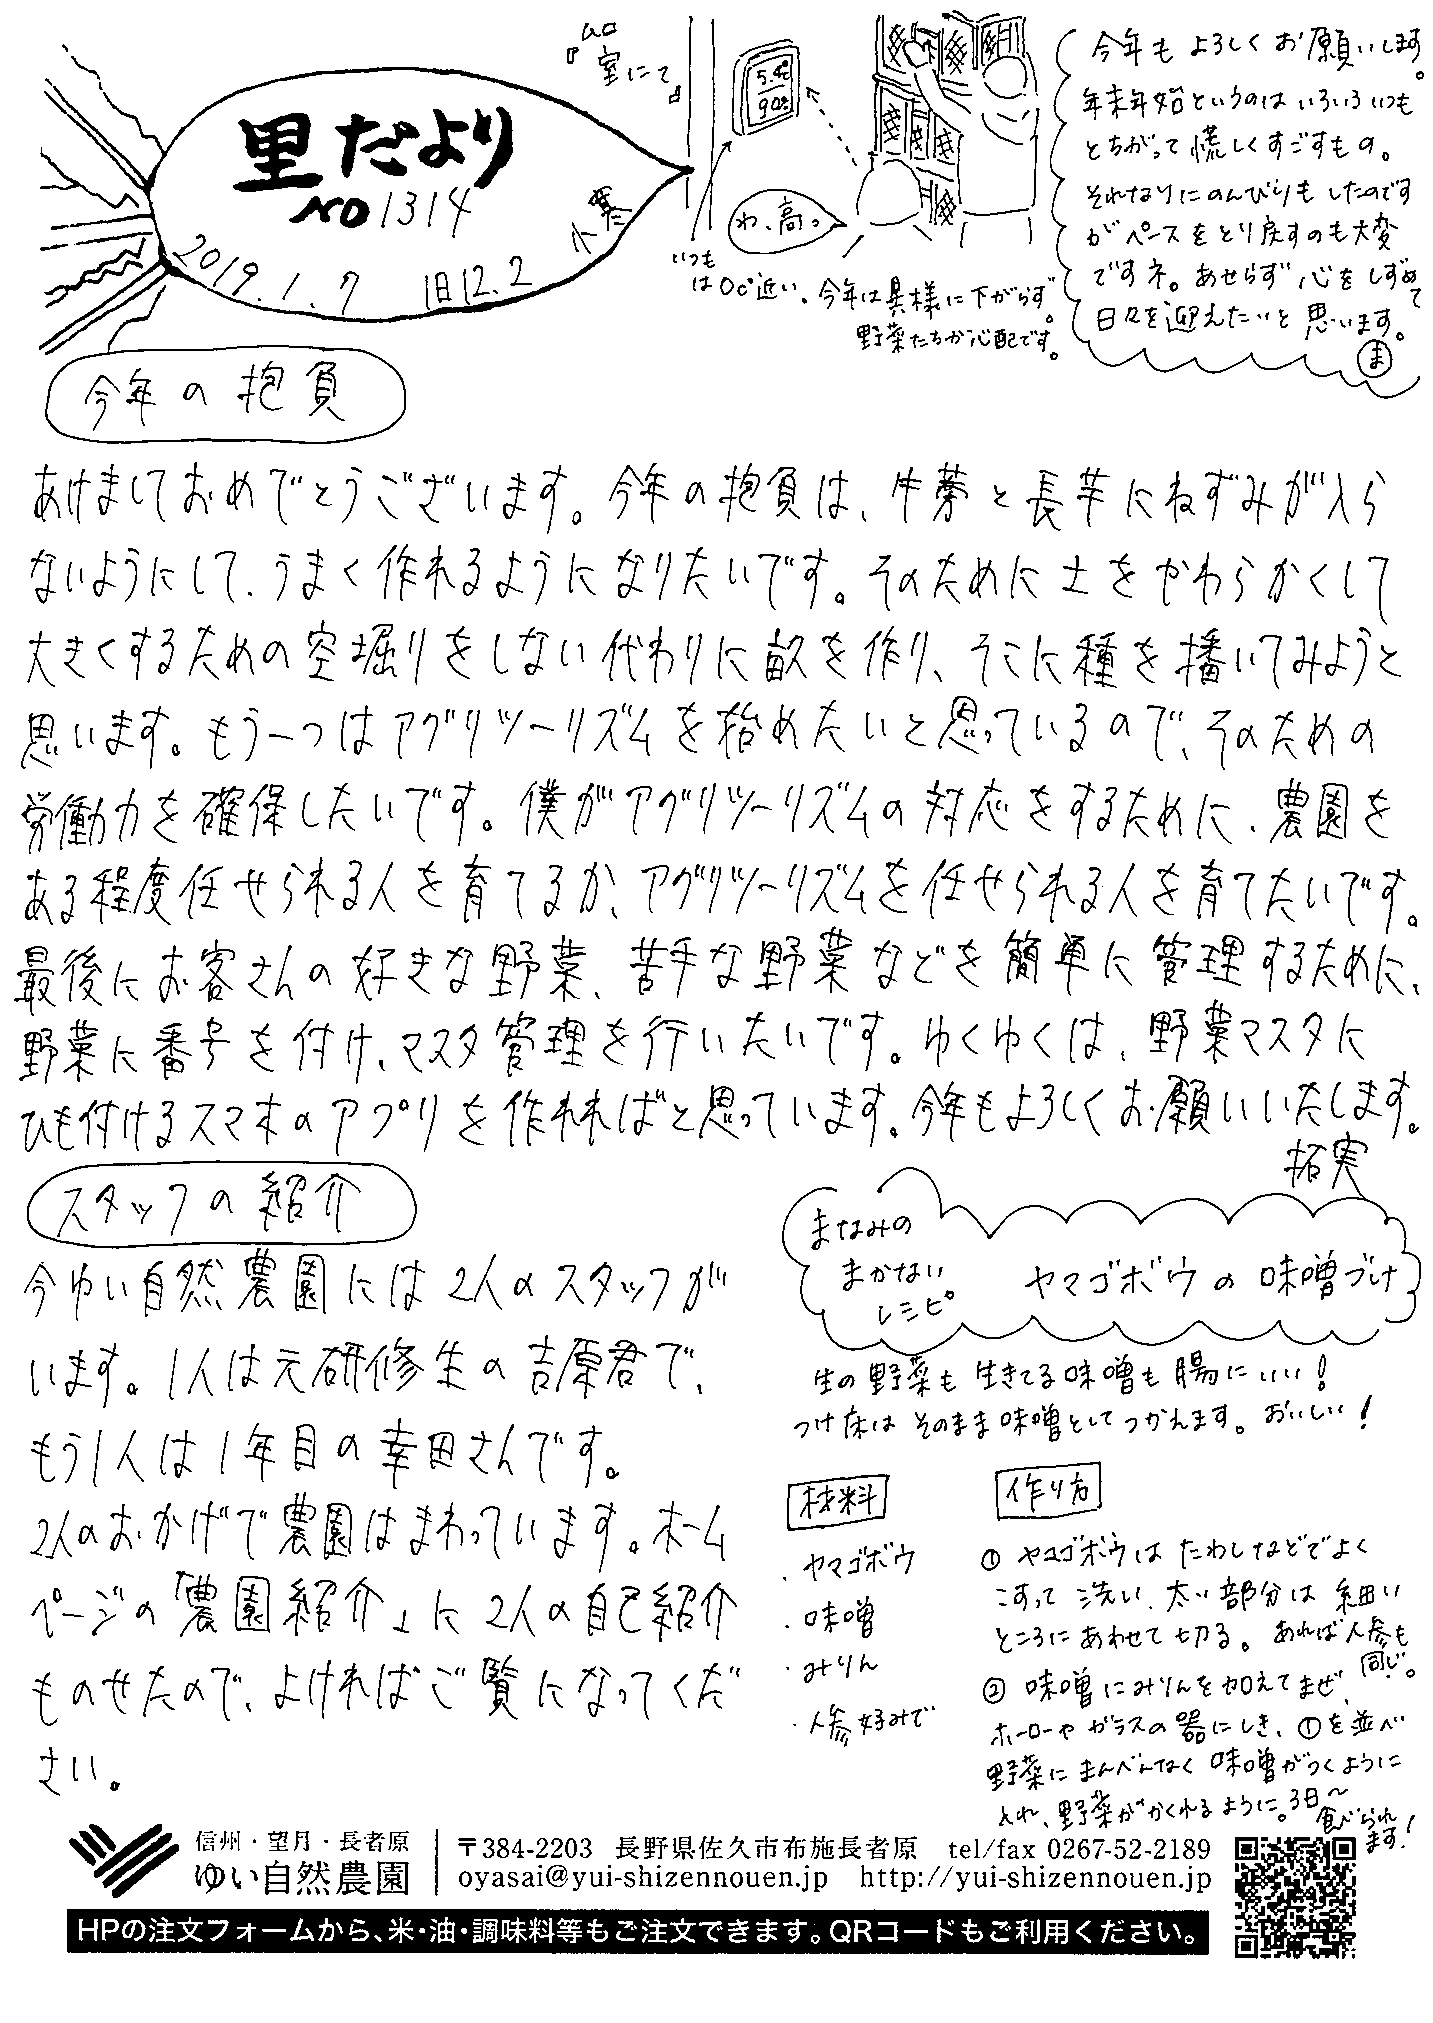 里だより
NO 1314
2019.1.7 旧12.2 小寒
室にて』
5.4℃
90%
わ、高っ
いつも
は0℃近い。今年は異様に下がらず。
野菜たちが心配です。
今年もよろしくお願いします。
年末年始というのはいろいろいつも
とちがって慌しくすごすもの。
それなりにのんびりもしたのです
がペースをとり戻すのも大変
ですネ。あせらず心をしずめて
日々を迎えたいと思います。
ま
今年の抱負
あけましておめでとうございます。今年の抱負は、牛蒡と長芋にねずみが入ら
ないようにして、うまく作れるようになりたいです。そのために土をやわらかくして
大きくするための空堀りをしない代わりに畝を作り、そこに種を播いてみようと
思います。もう一つはアグリツーリズムを始めたいと思っているので、そのための
労働力を確保したいです。僕がアグリツーリズムの対応をするために、農園を
ある程度任せられる人を育てるか、アグリツーリズムを任せられる人を育てたいです。
最後にお客さんの好きな野菜、苦手な野菜などを簡単に管理するために、
野菜に番号を付け、マスタ管理を行いたいです。ゆくゆくは、野菜マスタに
ひも付けるスマホのアプリを作れればと思っています。今年もよろしくお願いいたします。
拓実
スタッフの紹介
今ゆい自然農園には2人のスタッフが
います。1人は元研修生の吉原君で、
もう1人は1年目の幸田さんです。
2人のおかげで農園はまわっています。ホーム
ページの「農園紹介」に2人の自己紹介
ものせたので、よければご覧になってくだ
さい。
まなみの
まかない
レシピ
ヤマゴボウの味噌づけ
生の野菜も生きてる味噌も腸にいい!
つけ床はそのまま味噌としてつかえます。おいしい!
材料
・ヤマゴボウ
・味噌
・みりん
・人参好みで
作り方
① ヤマゴボウはたわしなどでよく
こすって洗い、太い部分は細い
ところにあわせて切る。あれば人参も
同じ。
② 味噌にみりんを加えてまぜ、
ホーローやガラスの器にしき、①を並べ
野菜にまんべんなく味噌がつくように
入れ、野菜がかくれるように。3日〜
食べられ
ます!
信州・望月・長者原
ゆい自然農園
〒384-2203 長野県佐久市布施長者原 tel/fax 0267-52-2189
oyasai@yui-shizennouen.jp http://yui-shizennouen.jp
HPの注文フォームから、米・油・調味料等もご注文できます。QRコードもご利用ください。